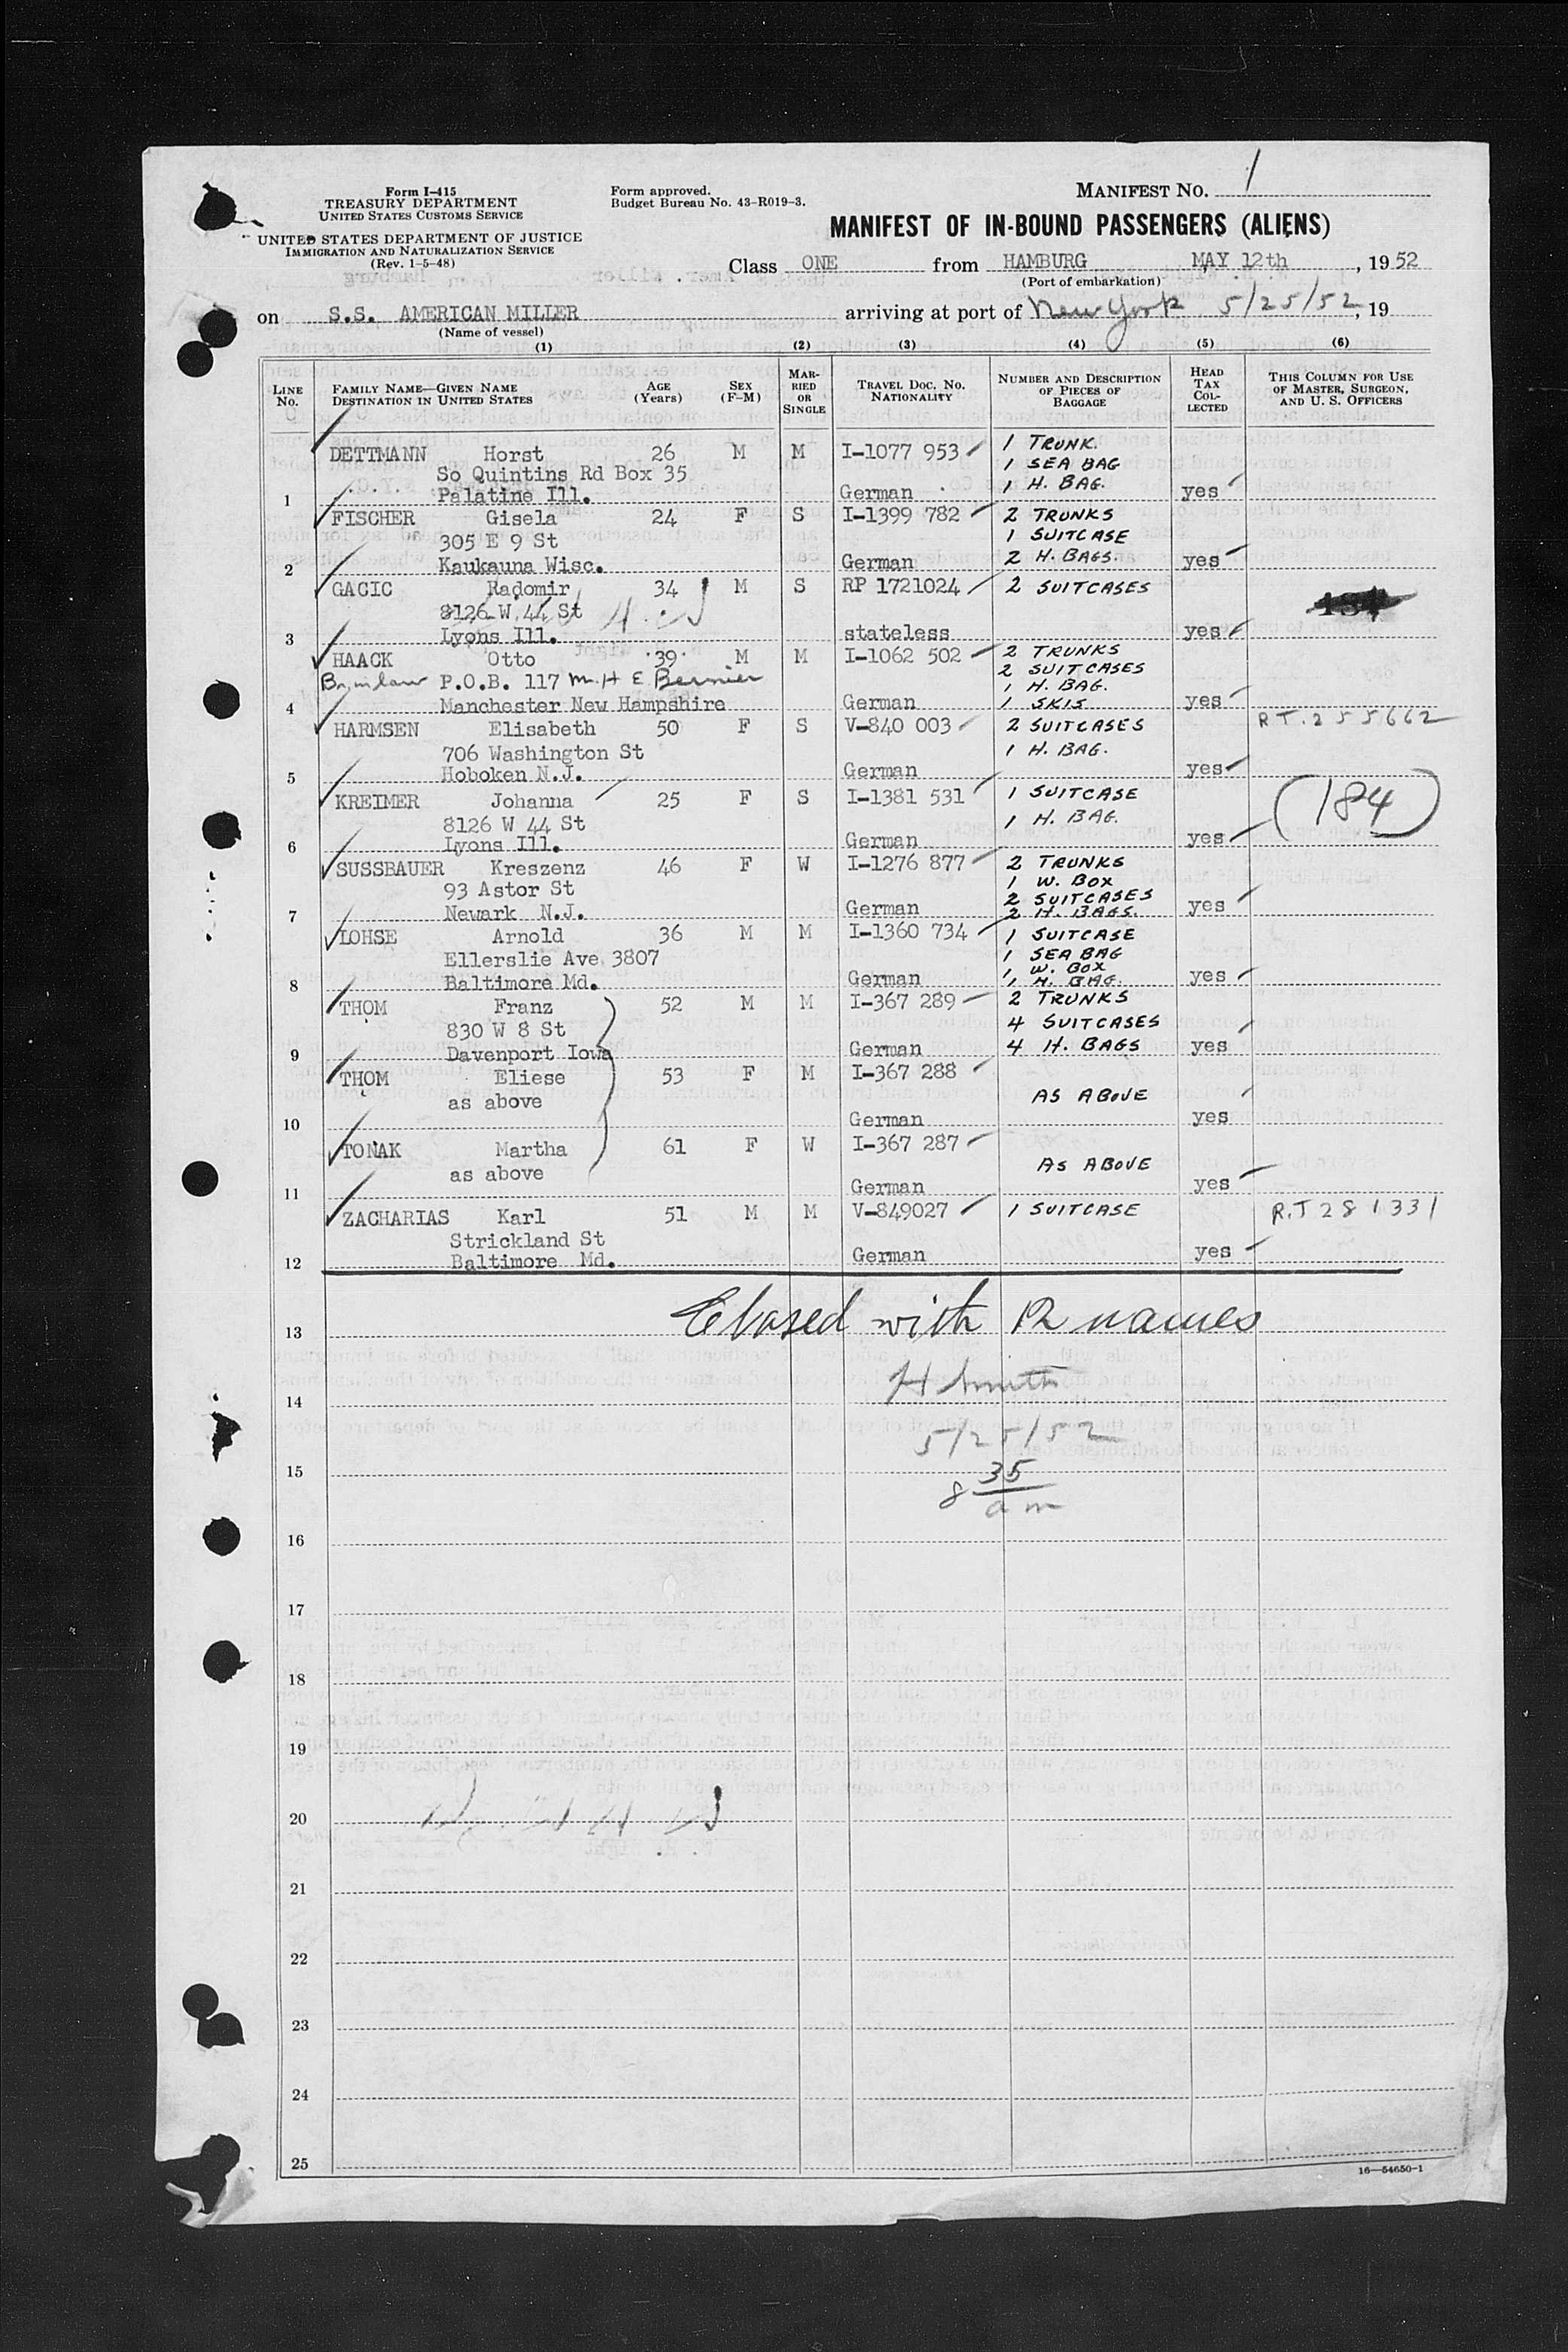 Form I-415
TREASURY DEPARTMENT
UNITED STATES CUSTOMS SERVICE
UNITED STATES DEPARTMENT OF JUSTICE
IMMIGRATION AND NATURALIZATION SERVICE
(Rev. 1-5-48)
Form approved.
Budget Bureau No. 43-R019-3.
MANIFEST NO. 1
MANIFEST OF IN-BOUND PASSENGERS (ALIENS)
Class ONE from HAMBURG MAY 12th, 1952
(Port of embarkation)
on S.S. AMERICAN MILLER arriving at port of New York 5/25/52, 19
(Name of vessel)
(1) (2) (3) (4) (5) (6)
LINE No. FAMILY NAME—GIVEN NAME DESTINATION IN UNITED STATES AGE (Years) SEX (F-M) MARRIED OR SINGLE TRAVEL DOC. NO. NATIONALITY NUMBER AND DESCRIPTION OF PIECES OF BAGGAGE HEAD TAX COLLECTED THIS COLUMN FOR USE OF MASTER, SURGEON, AND U. S. OFFICERS
DETTMANN Horst 26 M M I-1077 953 1 TRUNK.
So Quintins Rd Box 35 1 SEA BAG
1 Palatine Ill. German 1 H. BAG. yes
FISCHER Gisela 24 F S I-1399 782 2 TRUNKS
305 E 9 St 1 SUITCASE
2 Kaukauna Wisc. German 2 H. BAGS. yes
GACIC Radomir 34 M S RP 1721024 2 SUITCASES
8126 W 44 St
3 Lyons Ill. stateless yes
HAACK Otto 39 M M I-1062 502 2 TRUNKS
2 SUITCASES
P.O.B. 117 Mr. H E Bernier 1 H. BAG.
4 Manchester New Hampshire German 1 SKIS yes
HARMSEN Elisabeth 50 F S V-840 003 2 SUITCASES RT.255662
706 Washington St 1 H. BAG.
5 Hoboken N.J. German yes
KREIMER Johanna 25 F S I-1381 531 1 SUITCASE (184)
8126 W 44 St 1 H. BAG.
6 Lyons Ill. German yes
SUSSBAUER Kreszenz 46 F W I-1276 877 2 TRUNKS
93 Astor St 1 W. BOX
2 SUITCASES
7 Newark N.J. German 2 H. BAGS. yes
LOHSE Arnold 36 M M I-1360 734 1 SUITCASE
Ellerslie Ave 3807 1 SEA BAG
1 W. BOX
8 Baltimore Md. German 1 H. BAG. yes
THOM Franz 52 M M I-367 289 2 TRUNKS
830 W 8 St 4 SUITCASES
9 Davenport Iowa German 4 H. BAGS yes
THOM Eliese 53 F M I-367 288
as above AS ABOVE
10 German yes
TONAK Martha 61 F W I-367 287
as above AS ABOVE
11 German yes
ZACHARIAS Karl 51 M M V-849027 1 SUITCASE R.T 281331
Strickland St
12 Baltimore Md. German yes
13 Closed with 12 names
14 H Smith
5/25/52
15 8 35
am
16
17
18
19
20
21
22
23
24
25
16—54650-1